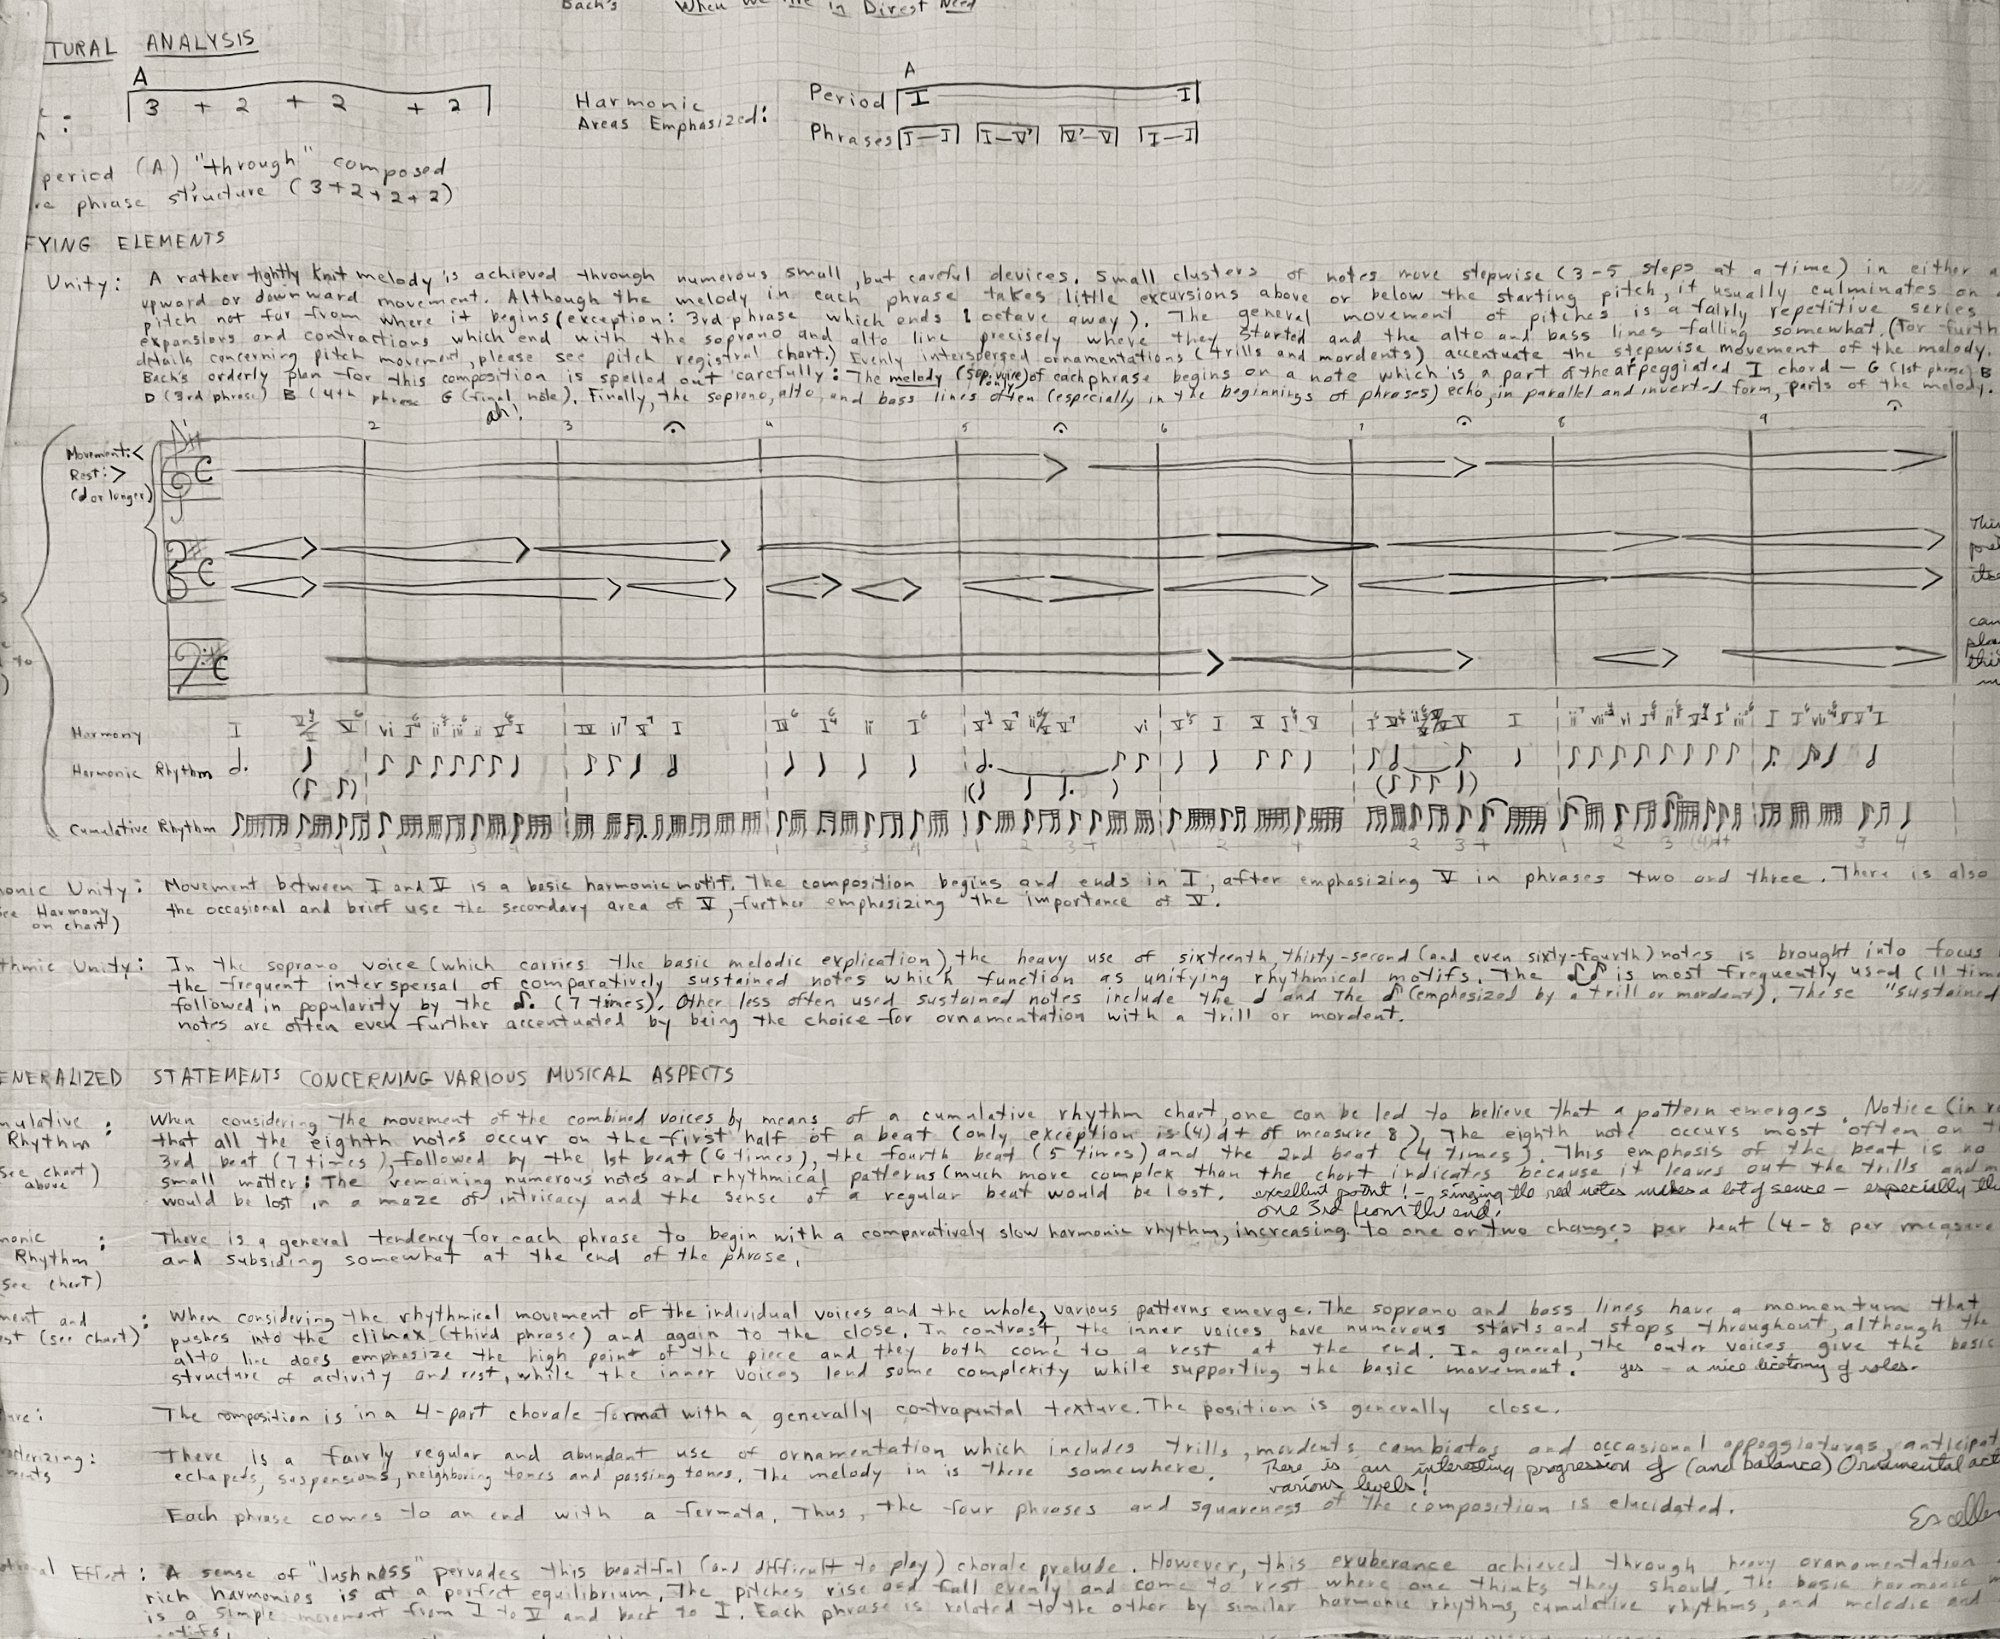 Bach's When We Are in Direst Need
TURAL ANALYSIS
A
3 + 2 + 2 + 2
Harmonic
Areas Emphasized:
A
Period I I
Phrases I–I I–V V–V I–I
period (A) "through" composed
phrase structure (3+2+2+2)
FYING ELEMENTS
Unity: A rather tightly knit melody is achieved through numerous small, but careful devices. Small clusters of notes move stepwise (3-5 steps at a time) in either
upward or downward movement. Although the melody in each phrase takes little excursions above or below the starting pitch, it usually culminates on
pitch not far from where it begins (exception: 3rd phrase which ends 1 octave away). The general movement of pitches is a fairly repetitive series
expansions and contractions which end with the soprano and alto line precisely where they started and the alto and bass lines falling somewhat. (For furth
details concerning pitch movement, please see pitch registral chart.) Evenly interspersed ornamentations (trills and mordents) accentuate the stepwise movement of the melody.
Bach's orderly plan for this composition is spelled out carefully: The melody (Sop. voice only) of each phrase begins on a note which is a part of the arpeggiated I chord – G (1st phrase) B
D (3rd phrase) B (4th phrase G (final note). Finally, the soprano, alto, and bass lines often (especially in the beginnings of phrases) echo, in parallel and inverted form, parts of the melody.
ah!
2 3 4 5 6 7 8 9
Movement: <
Rest: >
(d or longer)
This
itse
can
this
Harmony
Harmonic Rhythm
Cumulative Rhythm
monic Unity: Movement between I and V is a basic harmonic motif. The composition begins and ends in I, after emphasizing V in phrases two and three. There is also
see Harmony the occasional and brief use the secondary area of V, further emphasizing the importance of V.
on chart)
thmic Unity: In the soprano voice (which carries the basic melodic explication), the heavy use of sixteenth, thirty-second (and even sixty-fourth) notes is brought into focus
the frequent interspersal of comparatively sustained notes which function as unifying rhythmical motifs. The ♪♪ is most frequently used (11 time
followed in popularity by the ♪. (7 times). Other less often used sustained notes include the d and the ♪ (emphasized by a trill or mordent). These "sustained
notes are often even further accentuated by being the choice for ornamentation with a trill or mordent.
ENERALIZED STATEMENTS CONCERNING VARIOUS MUSICAL ASPECTS
mulative : When considering the movement of the combined voices by means of a cumulative rhythm chart, one can be led to believe that a pattern emerges. Notice (in re
Rhythm that all the eighth notes occur on the first half of a beat (only exception is (4) d+ of measure 8). The eighth note occurs most often on th
see chart) 3rd beat (7 times), followed by the 1st beat (6 times), the fourth beat (5 times) and the 2nd beat (4 times). This emphasis of the beat is no
above small matter: The remaining numerous notes and rhythmical patterns (much more complex than the chart indicates because it leaves out the trills and m
would be lost in a maze of intricacy and the sense of a regular beat would be lost. excellent point! – singing the red notes makes a lot of sense – especially the
one 3rd from the end!
monic : There is a general tendency for each phrase to begin with a comparatively slow harmonic rhythm, increasing to one or two changes per beat (4-8 per measure
Rhythm and subsiding somewhat at the end of the phrase.
see chart)
ment and : When considering the rhythmical movement of the individual voices and the whole, various patterns emerge. The soprano and bass lines have a momentum that
est (see chart) pushes into the climax (third phrase) and again to the close. In contrast, the inner voices have numerous starts and stops throughout, although the
alto line does emphasize the high point of the piece and they both come to a rest at the end. In general, the outer voices give the basic
structure of activity and rest, while the inner voices lend some complexity while supporting the basic movement. yes – a nice dicotomy of roles.
ure: The composition is in a 4-part chorale format with a generally contrapuntal texture. The position is generally close.
cterizing: There is a fairly regular and abundant use of ornamentation which includes trills, mordents, cambiatas and occasional appoggiaturas, anticipat
ments echapeés, suspensions, neighboring tones and passing tones. The melody in is there somewhere. There is an interesting progression of (and balance) Ornamental act
various levels!
Each phrase comes to an end with a fermata. Thus, the four phrases and squareness of the composition is elucidated.
Excelle
otional Effect: A sense of "lushness" pervades this beautiful (and difficult to play) chorale prelude. However, this exuberance achieved through heavy oranomentation
rich harmonies is at a perfect equilibrium. The pitches rise and fall evenly and come to rest where one thinks they should. The basic harmonic m
is a simple movement from I to V and back to I. Each phrase is related to the other by similar harmonic rhythms, cumulative rhythms, and melodic and
motifs.